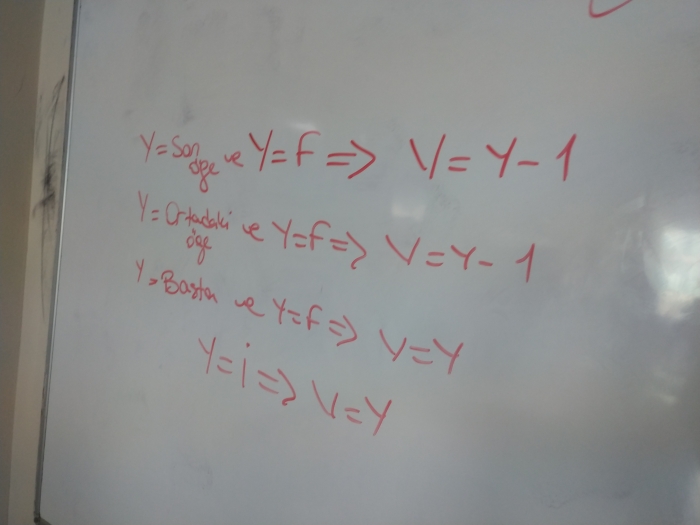 Y=Son öge ve Y=F => V=Y-1
Y=Ortadaki öge ve Y=F => V=Y-1
Y=Baştan ve Y=F => V=Y
Y=i => V=Y